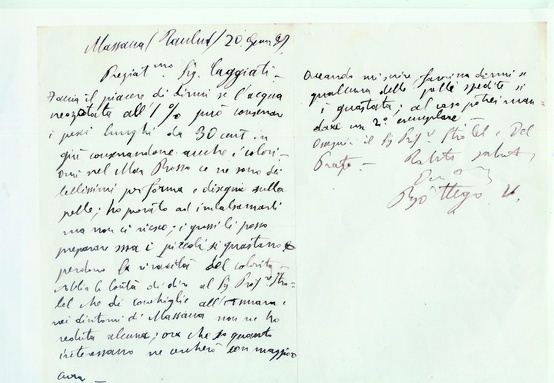 Massaua (Raulut) 20 Genn 89
Preziat.mo Sig. Caggiati -
Faccia il piacere di dirmi se l'acqua
all'1% può conservar
i pesci lunghi da 30 cent. in
più conservandone anche i colori -
nel Mar Rosso ce ne sono dei
bellissimi per forma e disegni sulla
pelle; ho provato ad imbalsamarli
ma non ci riesco; i grossi li posso
preparare ma i piccoli si guastano e
perdono la vivacità del colorito -
Abbia la bontà di dire al Sig Prof Stro-
bel che di conchiglie all'Asmara e
nei dintorni di Massaua non ne ho
veduta alcuna; ora che so quanto
interessano ne cercherò con maggior
cura -
Quando mi scrive favorisca dirmi se
qualcuna delle pelli spedite si
è guastata; al caso potrei man-
dare un 2° esemplare
il Sig Prof Strobel e Del
Prato -
Bottego V.